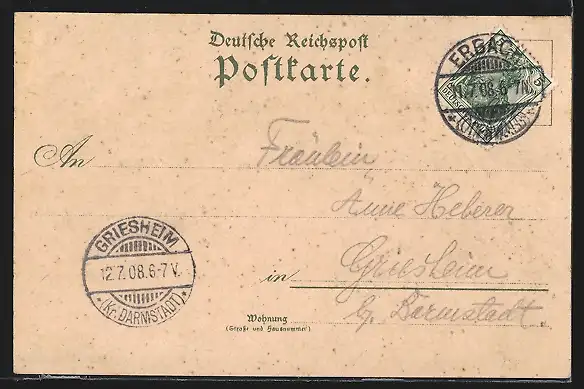 Deutsche Reichspost
Postkarte.
ERBACH
11.7.08.6-7N.
(ODENWALD)
An Fräulein
Anne Heberer
in Griesheim
b/ Darmstadt
Wohnung
(Straße und Hausnummer)
GRIESHEIM
12.7.08.6-7V.
*(Kr. DARMSTADT)*